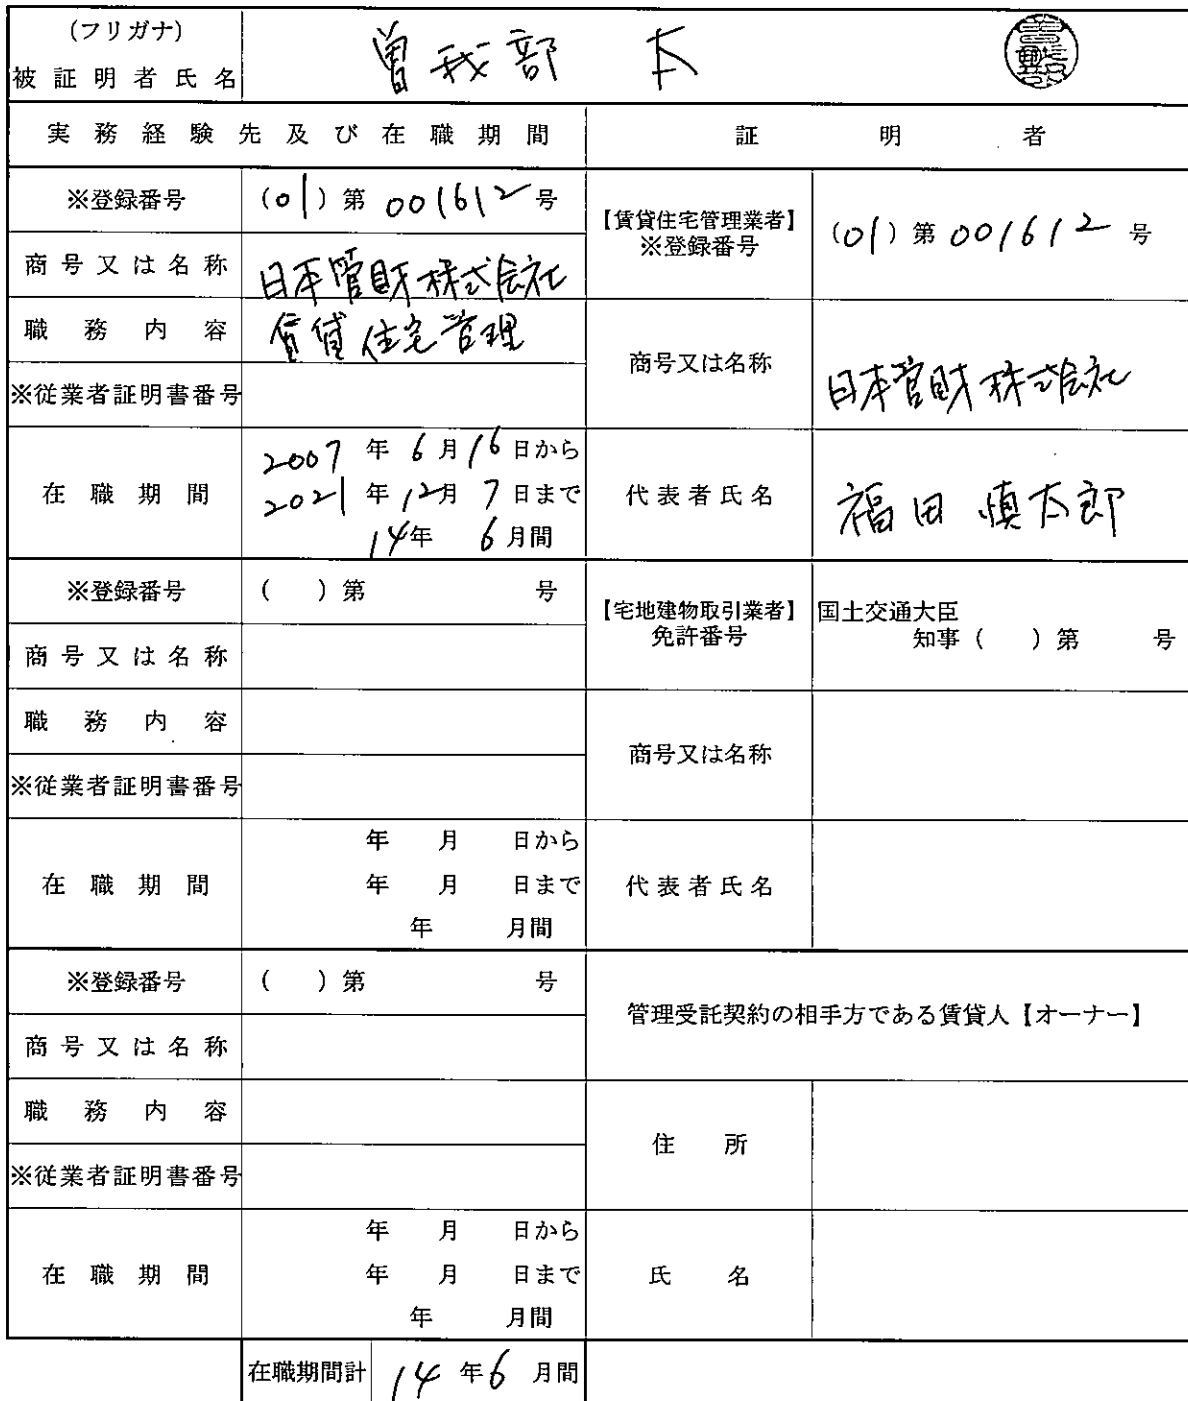 (フリガナ)
被証明者氏名 曽我部
実務経験先及び在職期間 証明者
※登録番号 (01)第 001612号
【賃貸住宅管理業者】
※登録番号 (01)第001612号
商号又は名称 日本管財株式会社
職務内容 賃貸住宅管理
商号又は名称 日本管財株式会社
※従業者証明書番号
在職期間
2007年6月16日から
2021年12月7日まで
14年6月間
代表者氏名 福田慎太郎
※登録番号 ( )第 号
【宅地建物取引業者】
免許番号
国土交通大臣
知事( )第 号
商号又は名称
職務内容
商号又は名称
※従業者証明書番号
在職期間
年 月 日から
年 月 日まで
年 月間
代表者氏名
※登録番号 ( )第 号
管理受託契約の相手方である賃貸人【オーナー】
商号又は名称
職務内容
住所
※従業者証明書番号
在職期間
年 月 日から
年 月 日まで
年 月間
氏名
在職期間計 14年6月間